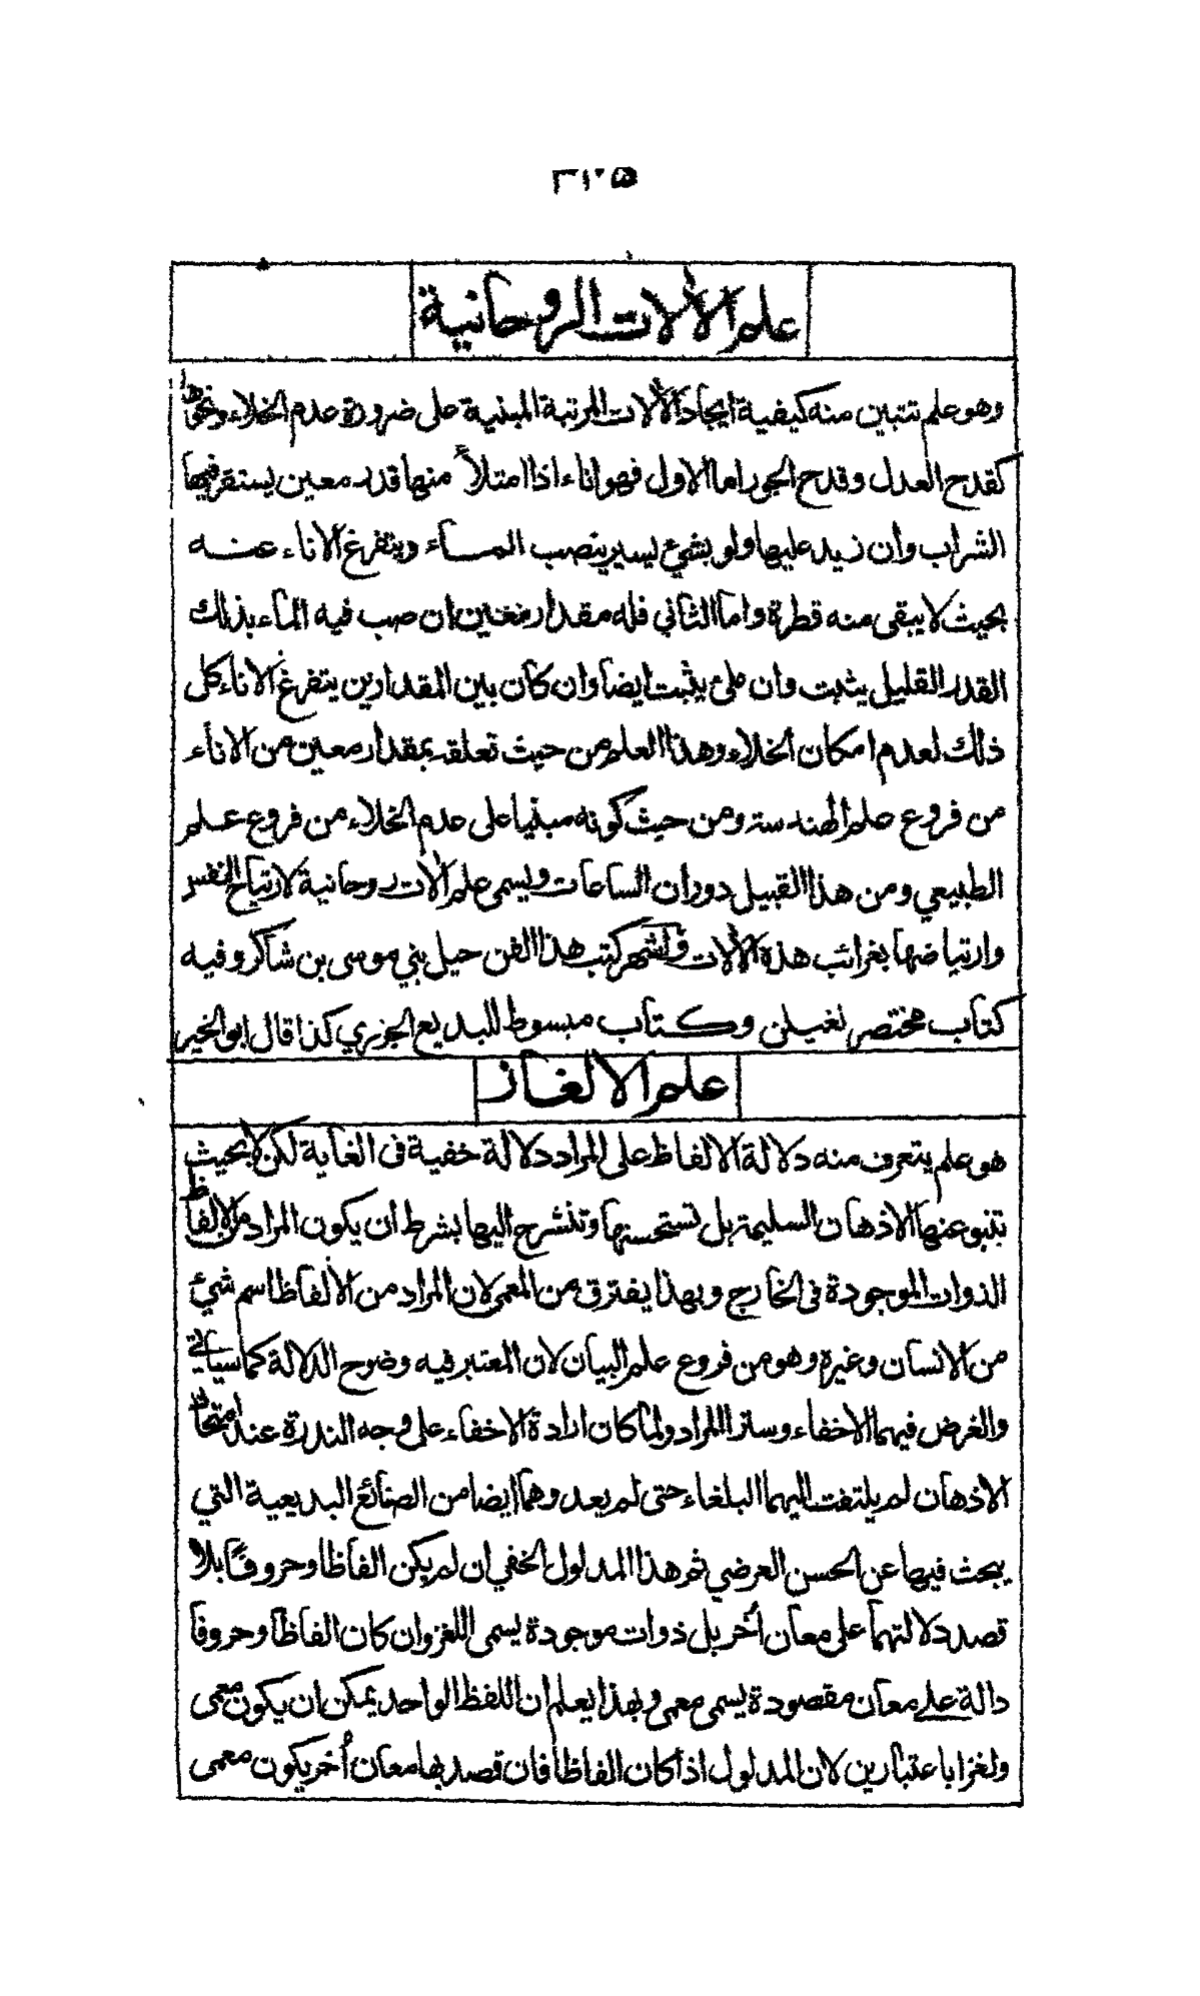 علم الآلات الروحانية
وهو علم تتبين منه كيفية ايجاد الآلات المرتبة المبنية على ضرورة عدم الخلاء ونحوها
كقدح العدل وقدح الجور اما الاول فهو اناء اذا امتلأ منها قدر معين يستقر فيها
الشراب وان زيد عليها ولو بشيء يسير ينصب المآء ويتفرغ الاناء عنه
بحيث لا يبقى منه قطرة واما الثاني فله مقدار معين ان صب فيه الماء بذلك
القدر القليل يثبت وان ملئ يثبت ايضا وان كان بين المقدارين يتفرغ الاناء كل
ذلك لعدم امكان الخلاء وهذا العلم من حيث تعلقه بمقدار معين من الاناء
من فروع علم الهندسة ومن حيث كونه مبنيا على عدم الخلاء من فروع علم
الطبيعي ومن هذا القبيل دوران الساعات ويسمى علم آلات روحانية لارتياح النفس
وارتياضها بغرائب هذه الآلات واشهر كتب هذا الفن حيل بني موسى بن شاكر وفيه
كتاب مختصر لغيلن وكتاب مبسوط للبديع الجزري كذا قال ابو الخير
علم الالغاز
هو علم يتعرف منه دلالة الالفاظ على المراد دلالة خفية فى الغاية لكن لا بحيث
تنبو عنها الاذهان السليمة بل تستحسنها وتنشرح اليها بشرط ان يكون المراد من الالفاظ
الذوات الموجودة فى الخارج وبهذا يفترق من المعمى لان المراد من الالفاظ اسم شيئ
من الانسان وغيره وهو من فروع علم البيان لان المعتبر فيه وضوح الدلالة كما سيأتى
والغرض فيهما الاخفاء وستر المراد ولما كان ارادة الاخفاء على وجه الندرة عند امتحان
الاذهان لم يلتفت اليهما البلغاء حتى لم يعد وهما ايضا من الصنائع البديعية التي
يبحث فيها عن الحسن العرضي ثم هذا المدلول الخفي ان لم يكن الفاظا وحروفًا بلا
قصد دلالتهما على معان أخر بل ذوات موجودة يسمى اللغز وان كان الفاظا وحروفا
دالة على معان مقصودة يسمى معمى وبهذا يعلم ان اللفظ الواحد يمكن ان يكون معمى
ولغزا باعتبارين لان المدلول اذا كان الفاظا فان قصد بها معان أخر يكون معمى